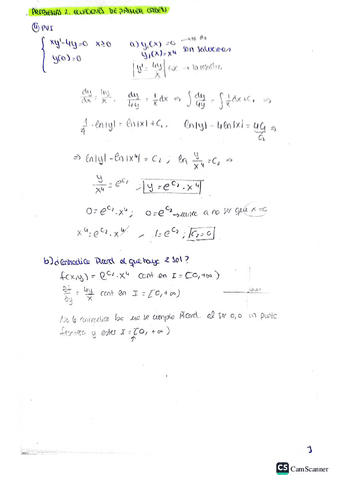 PROBLEMAS 2. ECUACIONES DE PRIMER ORDEN
④ PVI
{ xy'-4y=0 x≥0 a) y₁(x)=0
y(0)=0 y₂(x)=x⁴ son soluciones
y' = 4y/x
dy/dx = 4y/x ; dy/4y = 1/x dx ⇒ ∫ dy/4y = ∫ 1/x dx + C₁ ⇒
1/4 · ln|y| = ln|x| + C₁ ln|y| - 4 ln|x| = 4C₁
C₂
⇒ ln|y| - ln|x⁴| = C₂ , ln y/x⁴ = C₂ ⇒
y/x⁴ = e^C₂ → y = e^C₂ · x⁴
0 = e^C₂ · x⁴ ; 0 = e^C₂ → a no ser que x=0
x⁴ = e^C₂ · x⁴ , 1 = e^C₂ ; C₂=0
b) ¿contradice Picard el que haya 2 sol?
f(x,y) = e^C₂ · x⁴ cont en I = [0,+∞)
∂f/∂y = 4y/x cont en I = [0,+∞)
No lo contradice no se cumple Picard al ser 0,0 un punto
frontera y estes I = [0, +∞)
CS CamScanner